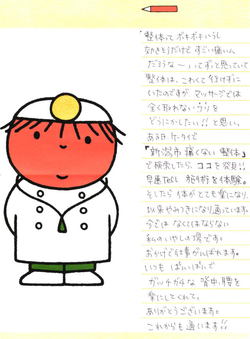 整体って ボキボキいうし
効きそうだけど すごい痛いん
だろうな～、ってずっと思っていて
整体は、これって行けずに
いたのですが、マッサージでは
全く取れないコリを
どうにかしたい!! と思い、
ある日 ケータイで
「新潟市 痛くない 整体」
で検索したら、ココを発見!!
早速TELし 施術を体験。
そしたら 体がとても楽になり、
以来やみつきになり通っています。
今では なくてはならない
私のいやしの場です。
おかげで仕事がんばれます。
いつも ぱんぱんで
ガッチガチな 背中、腰を
楽にしてくれて、
ありがとうございます。
これからも通います!!